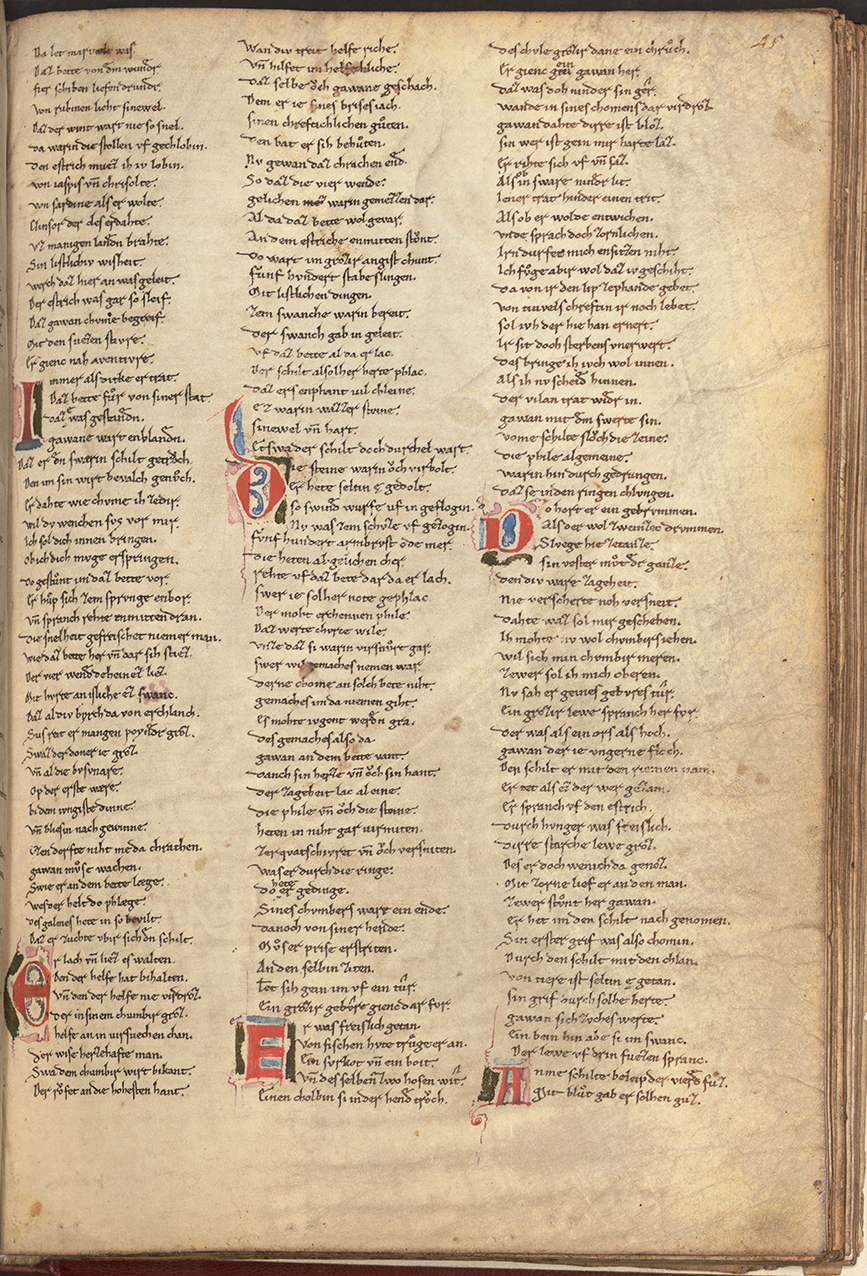 45
Da let marveile was.
Daz bette von dem wundr.
fier schiben liefen drundr.
von rubinen licht sinewel.
Daz der wint wart nie so snel.
da warin die stollen uf gechlobin.
den estrich muez ih iv lobin.
von iaspis vn̄ chrisolte.
von sardine als er wolte.
Clinsor der des erdahte.
vz manigen landn brahte.
Sin listlichiv wisheit.
werch daz hier an was geleit.
Der estrich was gar so sleif.
Daz gawan chume begreif.
Mit den fuezen stivre.
Er gienc nah aventivre.
Immer als dicke er trat.
Daz bette fůr von siner stat
daz e was gestandn.
gawane wart enblandn.
Daz er dn swærin schilt getrůch
Den im sin wirt bevalch genůch.
Er dahte wie chume ih ze dir.
wil dv wenchen svs vor mir.
Ich sol dich innen bringen.
ob ich dich mvge erspringen.
do gestůnt im daz bette vor.
Er hůp sich zem sprvnge enbor.
vn̄ spranch rehte enmitten dran.
die snelheit gefrischet niemer man.
wie daz bette her vn̄ dar sih stiez.
Der vier wende deheine ez liez.
Mit hvrte an isliche ez swanc.
Daz al div bvrch da von erchlanch.
Sus reit er mangen poyndr groz.
Swaz der doner ie groz.
vn̄ al die bvsvnare.
Op der erste ware.
bi dem ivngiste dinne.
vn̄ bliesin nach gewinne.
Ezen dorfte niht me da chrachen.
gawan mvse wachen.
Swie er an dem bette læge.
wes der helt do phlæge.
des galmes hete in so bevilt.
Daz er zuchte vbir sich dn schilt.
Er lach vn̄ liez es walten.
Den der helfe hat bihalten.
vn̄ den der helfe nie virdroz.
der in sinem chumbir groz.
helfe an im virsuechen chan.
Der wise herzehafte man.
Swa dem chumbir wirt bikant.
Der růfet an die hohesten hant.
Wan div treit helfe riche.
vn̄ hilfet im helfechliche.
daz selbe och gawane geschach.
Dem er ie sines brises iach.
sinen chreftichlichen gůten.
den bat er sih behůten.
Nv gewan daz chrachen end.
So daz die vier wende.
gelichen warin gemezzen dar.
Al da daz bette wol gevar.
An dem estriche enmitten stont.
do wart im grozir angist chunt.
funf hvndert stabeslingen.
Mit listlichen dingen.
zem swanche warin bereit.
der swanch gab in geleit.
vf daz bette al da er lac.
Der schilt al solher herte phlac.
daz ers enphant vil chleine.
ez warin wazzer steine.
sinewel vn̄ hart.
Etswa der schilt doch durchel wart.
Die steine warn och virbolt.
Er hete seltin e gedolt.
so swindv wurfe vf in geflogin.
Nv was zem schvze vf gezogin.
funf hundert armbrvst ode mer.
die heten al gelichen cher
rehte vf daz bete dar da er lach.
Swer ie solher note gephlac
Der moht erchennen phile.
Daz werte churze wile.
vnze daz si warin virsnurt gar.
Swer wil gemaches nemen war.
derne chome an solch bete niht.
gemaches im da niemen giht.
Es mohte ivgent werdn gra.
des gemaches also da
gawan an dem bette vant.
danch sin herze vn̄ och sin hant.
der zageheit lac al eine.
die phile vn̄ och die steine.
heten in niht gar virmiten.
zerquatschivret vn̄ och versniten.
was er durch die ringe.
do hete er gedinge.
Sines chvmbers ware ein ende.
danoch von siner hende.
Můser prise erstriten.
An den selbin ziten.
Tet sih gein im vf ein tůr.
Ein grozir gebvre gienc dar fvr.
Er was freislich getan.
Von fischen hvte trůge er an.
Ein svrkot vn̄ ein boit.
vn̄ des selben zwo hosen wit.
Einen cholbin si inder hend troch.
des chvle grozir dane ein chruch.
Er gienc gein gawan her.
daz was doh ninder sin ger.
wande in sines chomens dar virdroz.
gawan dahte dirre ist bloz.
sin wer ist gein mir harte laz.
Er rihte sich vf vn̄ saz.
Als ob in sware nindr lit.
iener trat hinder einen trit.
Als ob er wolde entwichen.
vnde sprach doch zornlichen.
Irn durfet mich ensitzen niht.
Ich fůge abir wol daz iv geschiht.
da von ir den lip zephande gebet.
Von tiuvels chreftin ir noch lebet.
sol ivh der hie han ernert.
Ir sit doch sterbens vnerwert.
des bringe ih ivch wol innen.
Als ih nv scheid hinnen.
der vilan trat widr in.
gawan mit dm swerte sin.
vome schilte slůch die zeine.
die phile algemeine.
warin hin durch gedrungen.
daz se inden ringen chlvngen.
Do hort er ein gebrvmmen.
Als der wol zweinzec drvmmen.
Slvege hie zetanze.
sin vester můt der ganze.
den div ware zageheit.
Nie verscherte noh versneit.
dahte waz sol mir geschehen.
Ih mohte nv wol chvmbirs iehen.
wil sich min chvmbir meren.
zewer sol ih mich cheren.
Nv sah er geines gebvres tůr.
Ein grozir lewe spranch her fvr.
der was als ein ors als hoch.
gawan der ie vngerne floch.
Den schilt er mit den riemen nam.
Er tet als ez der wer gezam.
Er spranch vf den estrich.
durch hvnger was freislich.
dirre starche lewe groz.
Des er doch wenich da genoz.
Mit zorne lief er an den man.
zewer stont her gawan.
Er het im den schilt nach genomen.
Sin erster grif was also chomin.
Durch den schilt mit den chlan.
von tiere ist seltin e getan.
sin grif durch solhe herte.
gawan sich zvches werte.
Ein bein hin abe si im swanc.
Der lewe vf drin fuezen spranc.
Anme schilte beleip der vierd fůz.
Mit blůt gab er solhen guz.